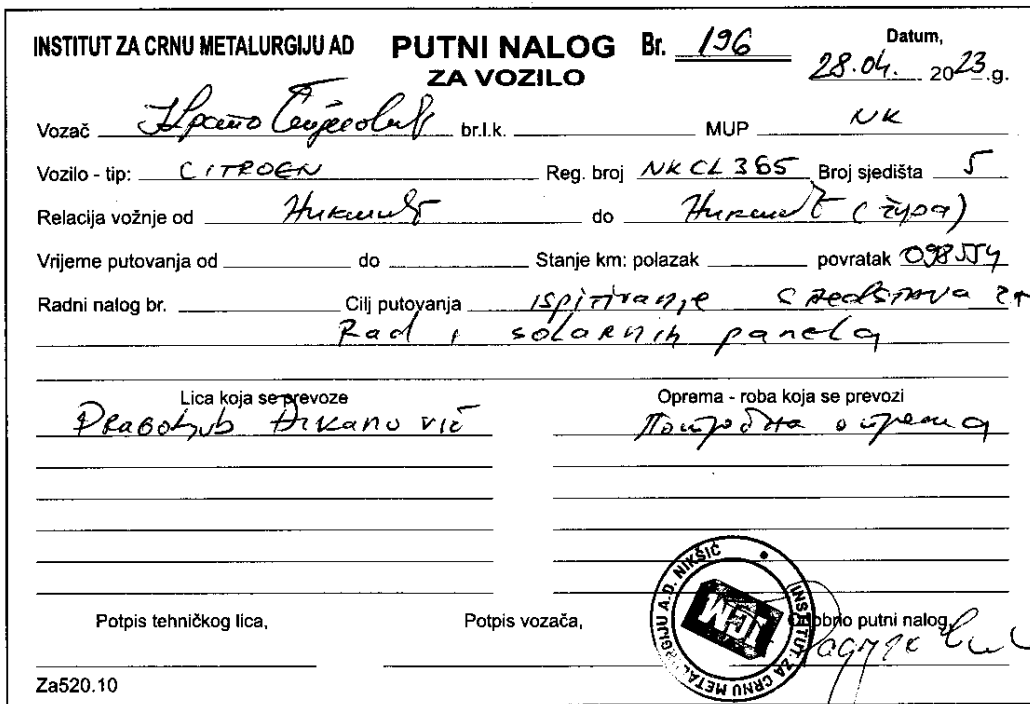 INSTITUT ZA CRNU METALURGIJU AD PUTNI NALOG Br. 196 Datum,
ZA VOZILO 28.04. 2023.g.
Vozač br.l.k. MUP NK
Vozilo - tip: CITROEN Reg. broj NK CL 365 Broj sjedišta 5
Relacija vožnje od Никшић do Никшић (жупа)
Vrijeme putovanja od do Stanje km: polazak povratak 098554
Radni nalog br. Cilj putovanja ispitivanje sredstava za
Rad i solarnih panela
Lica koja se prevoze Oprema - roba koja se prevozi
Dragoljub Đikanović Потребна опрема
Potpis tehničkog lica, Potpis vozača, Odobrio putni nalog,
INSTITUT ZA CRNU METALURGIJU A.D. NIKŠIĆ
Za520.10